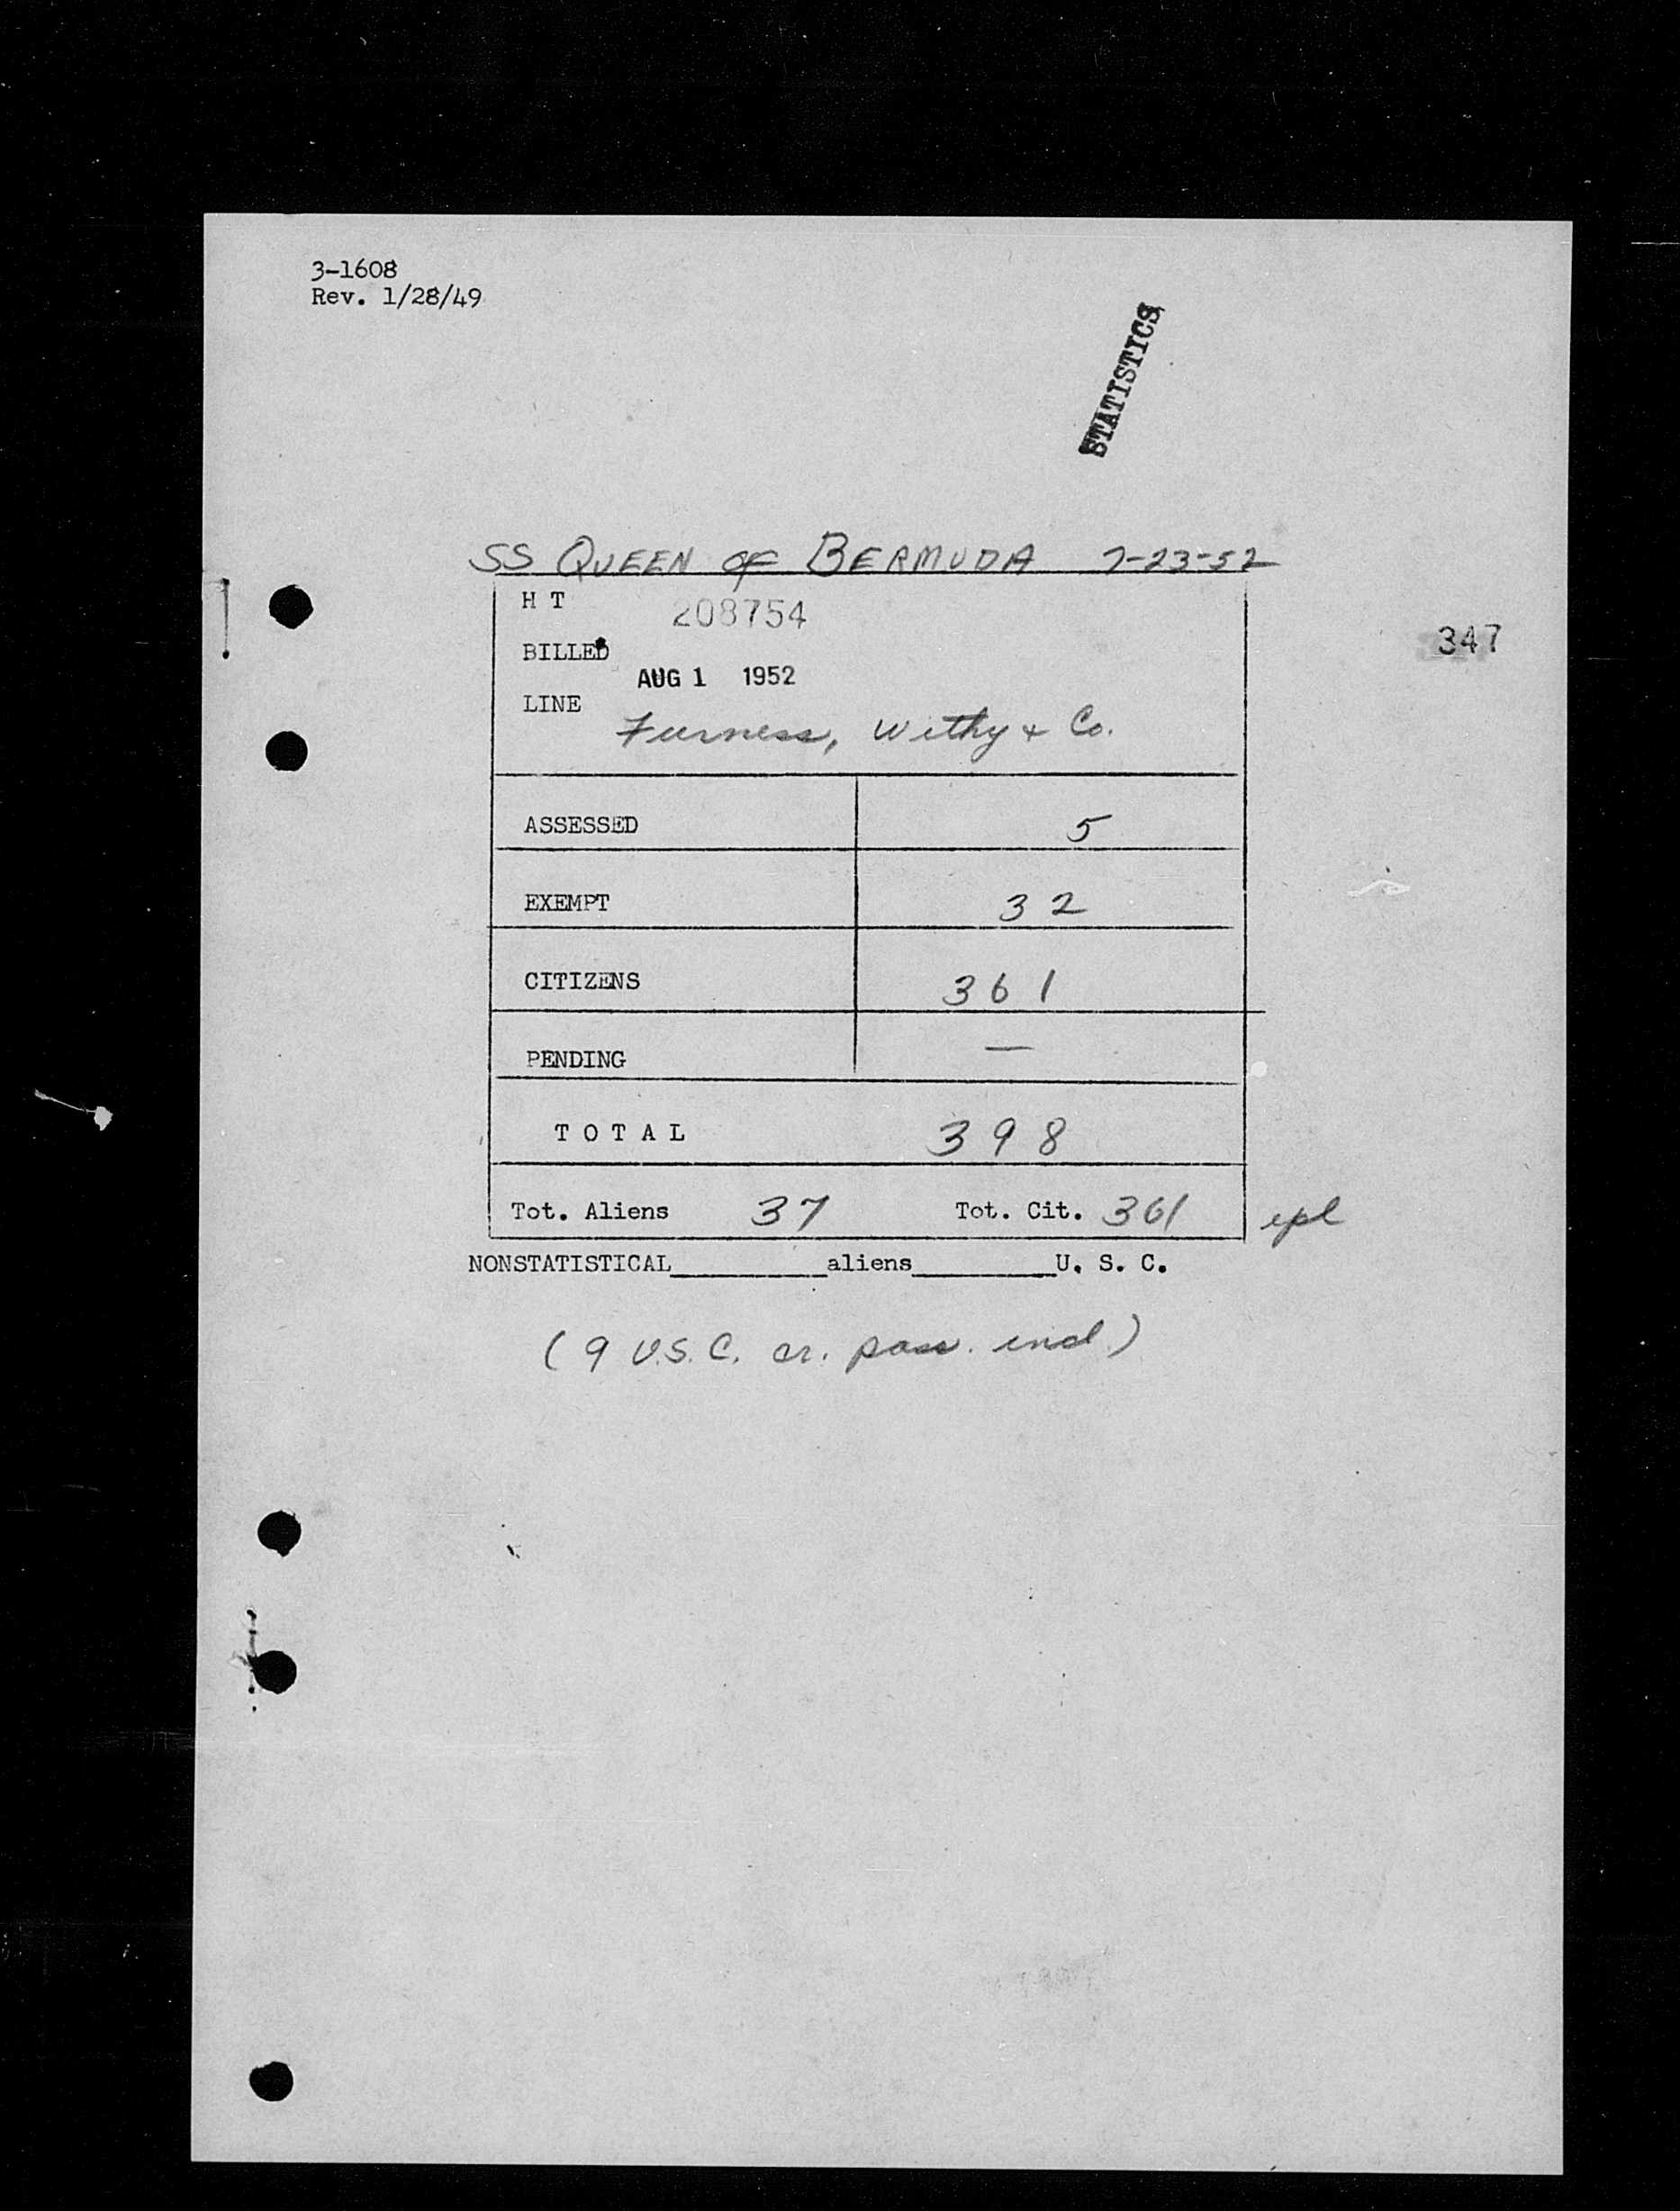 3-1608
Rev. 1/28/49
STATISTICS
SS QUEEN OF BERMUDA 7-23-52
H T 208754
347
BILLED
AUG 1 1952
LINE
Furness, Withy & Co.
ASSESSED 5
EXEMPT 32
CITIZENS 361
PENDING —
TOTAL 398
Tot. Aliens 37 Tot. Cit. 361
NONSTATISTICAL________aliens________U. S. C.
(9 U.S.C. cr. pass. incl.)